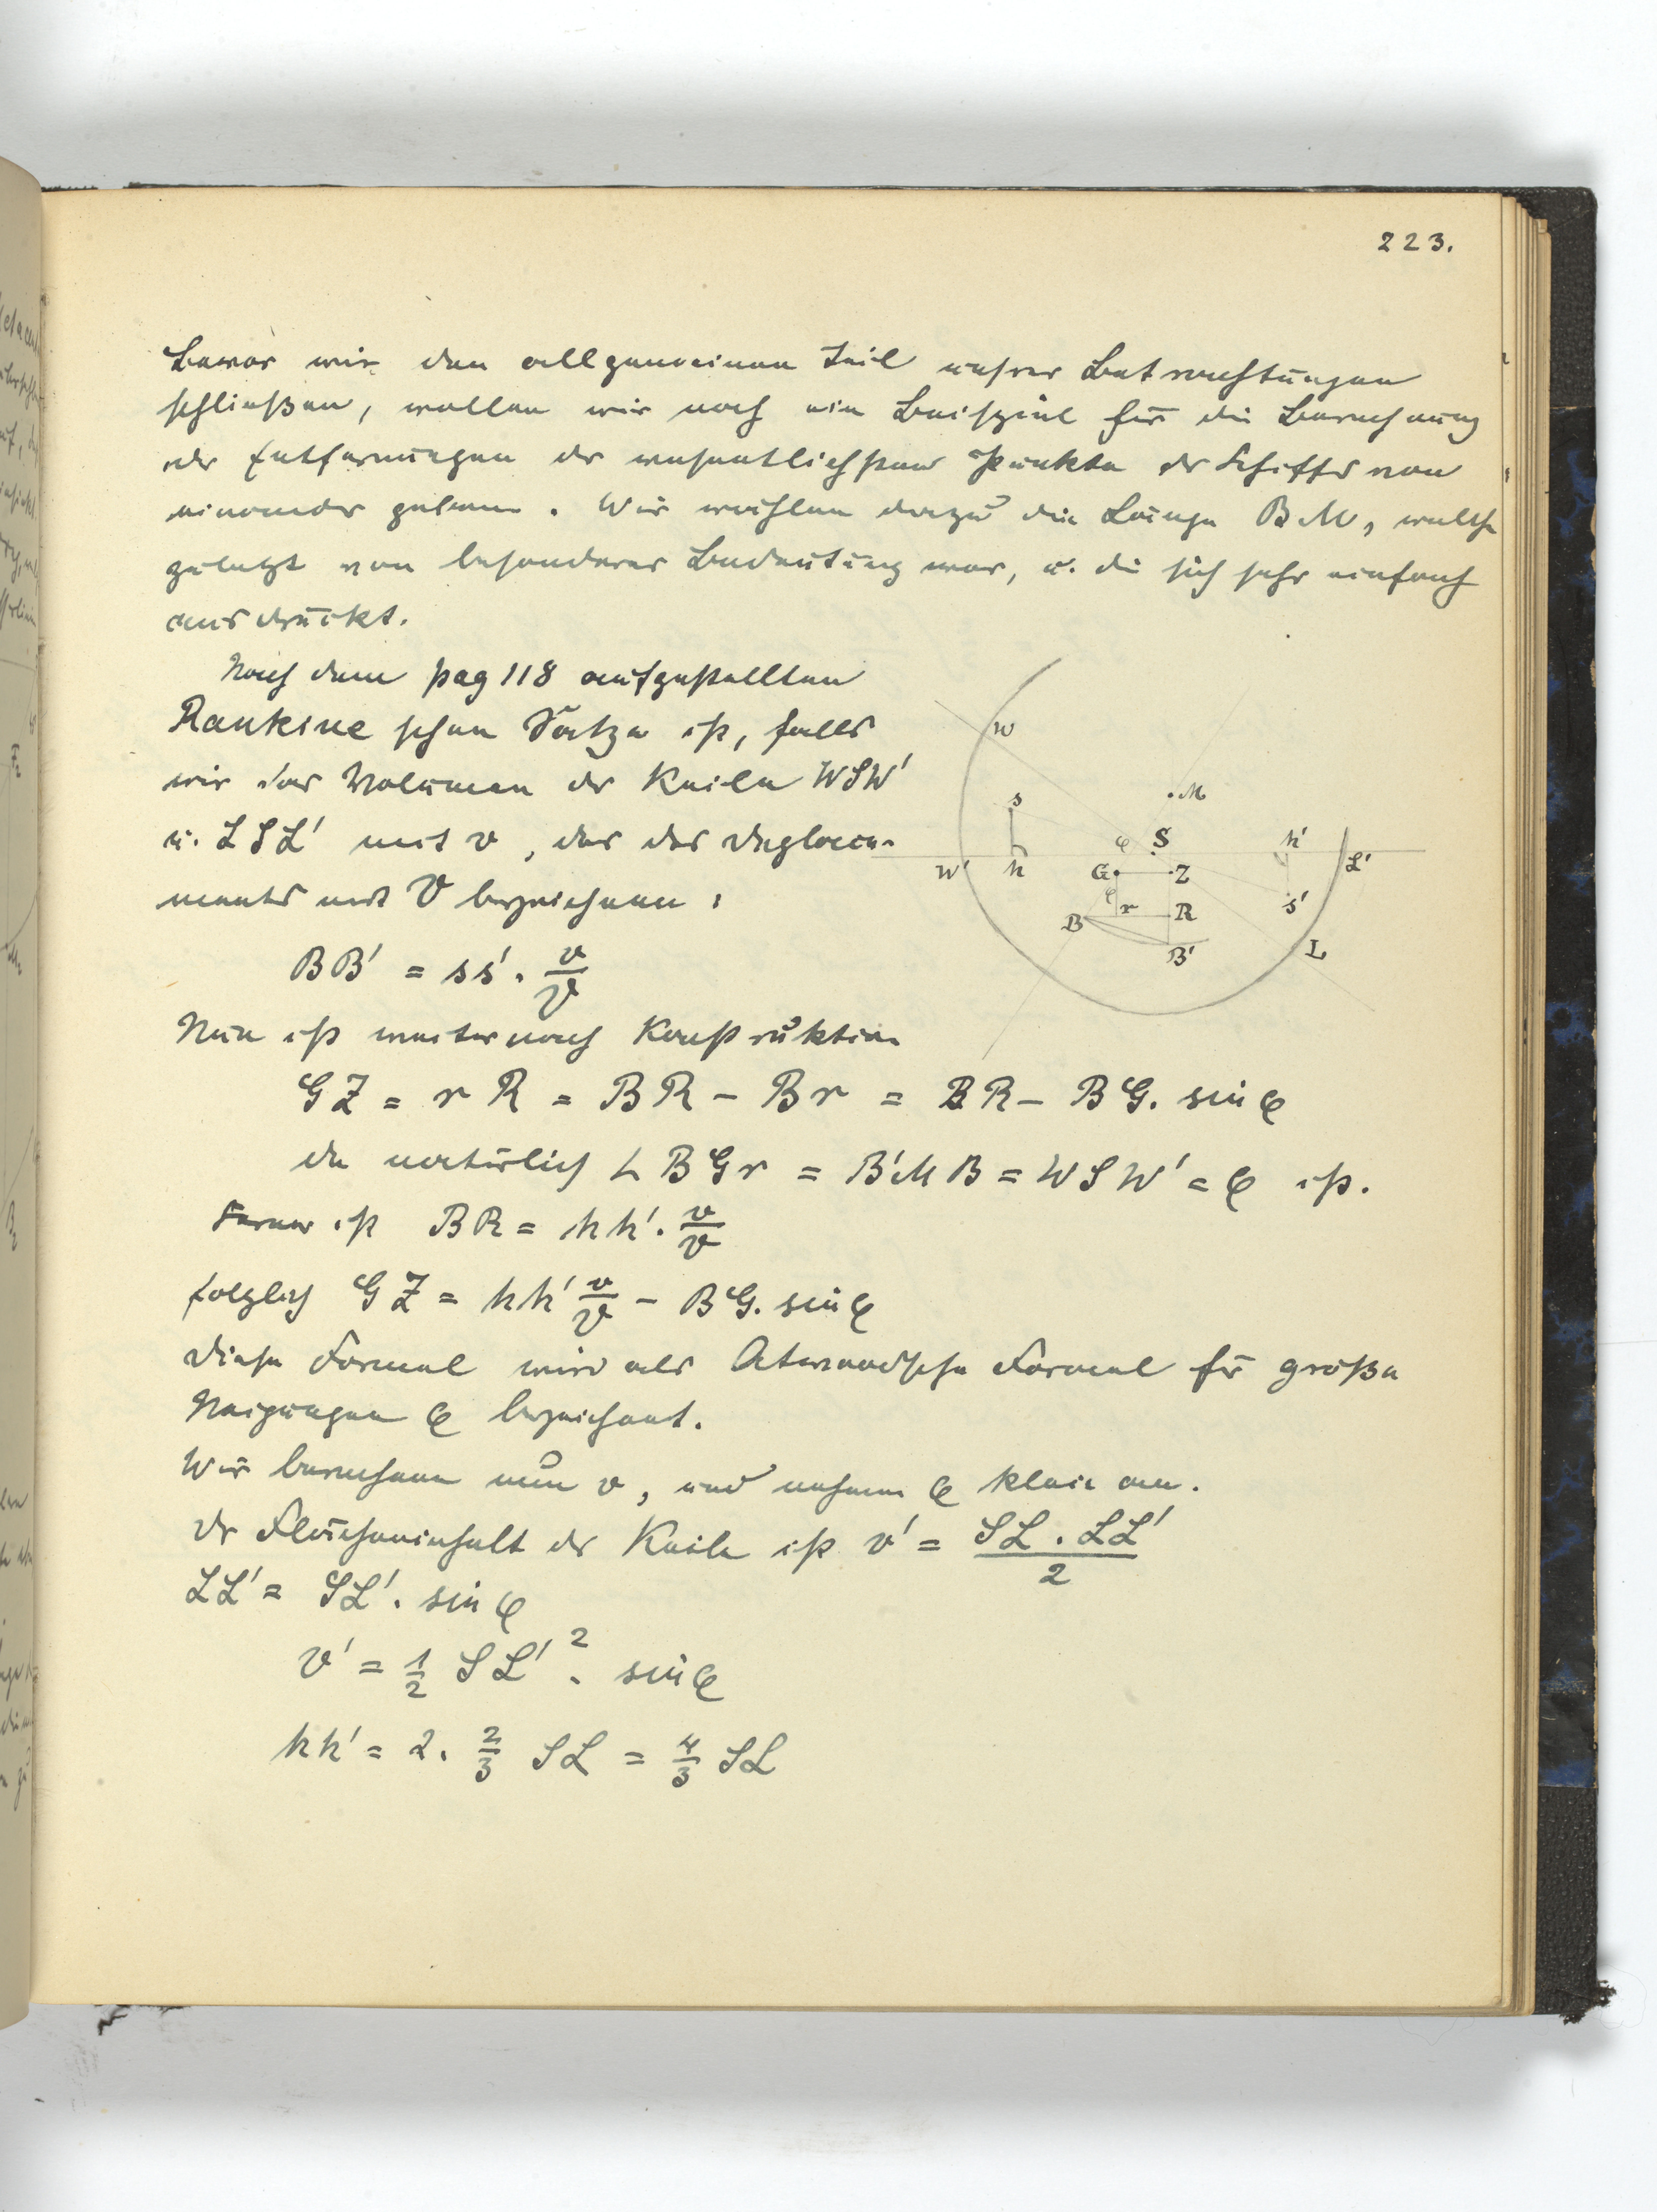 223.
Bevor wir den allgemeinen Teil unsrer Betrachtungen
schließen, wollen wir noch ein Beispiel für die Berechnung
der Entfernungen der wesentlichsten Punkte des Schiffes von
einander geben. Wir wählen dazu die Länge BM, welche
zuletzt von besonderer Bedeutung war, u. die sich sehr einfach
ausdrückt.
Nach dem pag 118 aufgestellten
Rankine schen Satze ist, falls
wir das Volumen der Keile WSW'
u. LSL' mit v, das des Deplace-
ments mit V bezeichnen:
BB' = ss' · v/V
Nun ist weiter nach Konstruktion
GZ = rR = BR – Br = BR – BG. sin φ
da natürlich ∠ BGr = B'MB = WSW' = φ ist.
Ferner ist BR = hh' · v/V
folglich GZ = hh' v/V – BG. sin φ
Diese Formel wird als Atwoodsche Formel für große
Neigungen φ bezeichnet.
Wir berechnen nun v, und nehmen φ klein an.
Der Flächeninhalt der Keile ist v' = SL . LL' / 2
LL' = SL' . sin φ
v' = 1/2 SL'² . sin φ
hh' = 2 . 2/3 SL = 4/3 SL
W
M
s
φ
S
h'
W'
h
G
Z
L'
φ
r
R
s'
B
B'
L